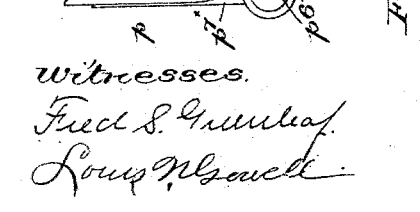 p p⁷ p⁶ F
Witnesses.
Fred S. Greenleaf.
Louis N. Gowell.